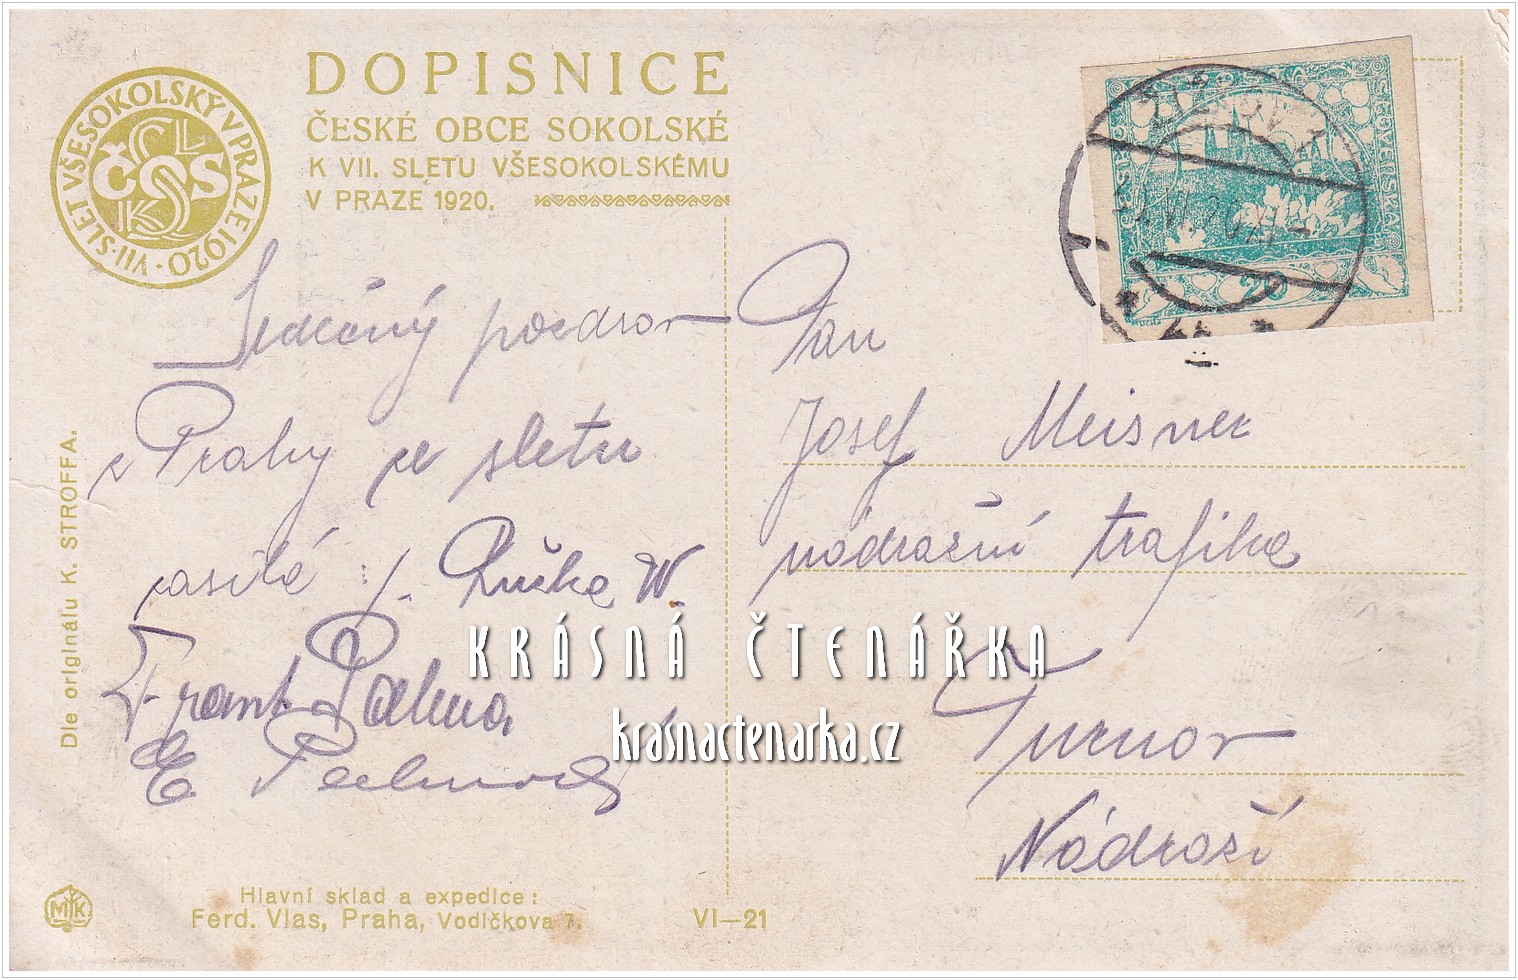 DOPISNICE
ČESKÉ OBCE SOKOLSKÉ
K VII. SLETU VŠESOKOLSKÉMU
V PRAZE 1920.
VII. SLET VŠESOKOLSKÝ V PRAZE 1920
ČOS
Srdečný pozdrav
z Prahy ze sletu
zasílá
Růžka W.
Frant. Palma
E
Pan
Josef Meisner
nádražní trafika
Turnov
Nádraží
20
Dle originálu K. STROFFA.
KRÁSNÁ ČTENÁŘKA
krasnactenarka.cz
MK
Hlavní sklad a expedice:
Ferd. Vlas, Praha, Vodičkova 7.
VI—21